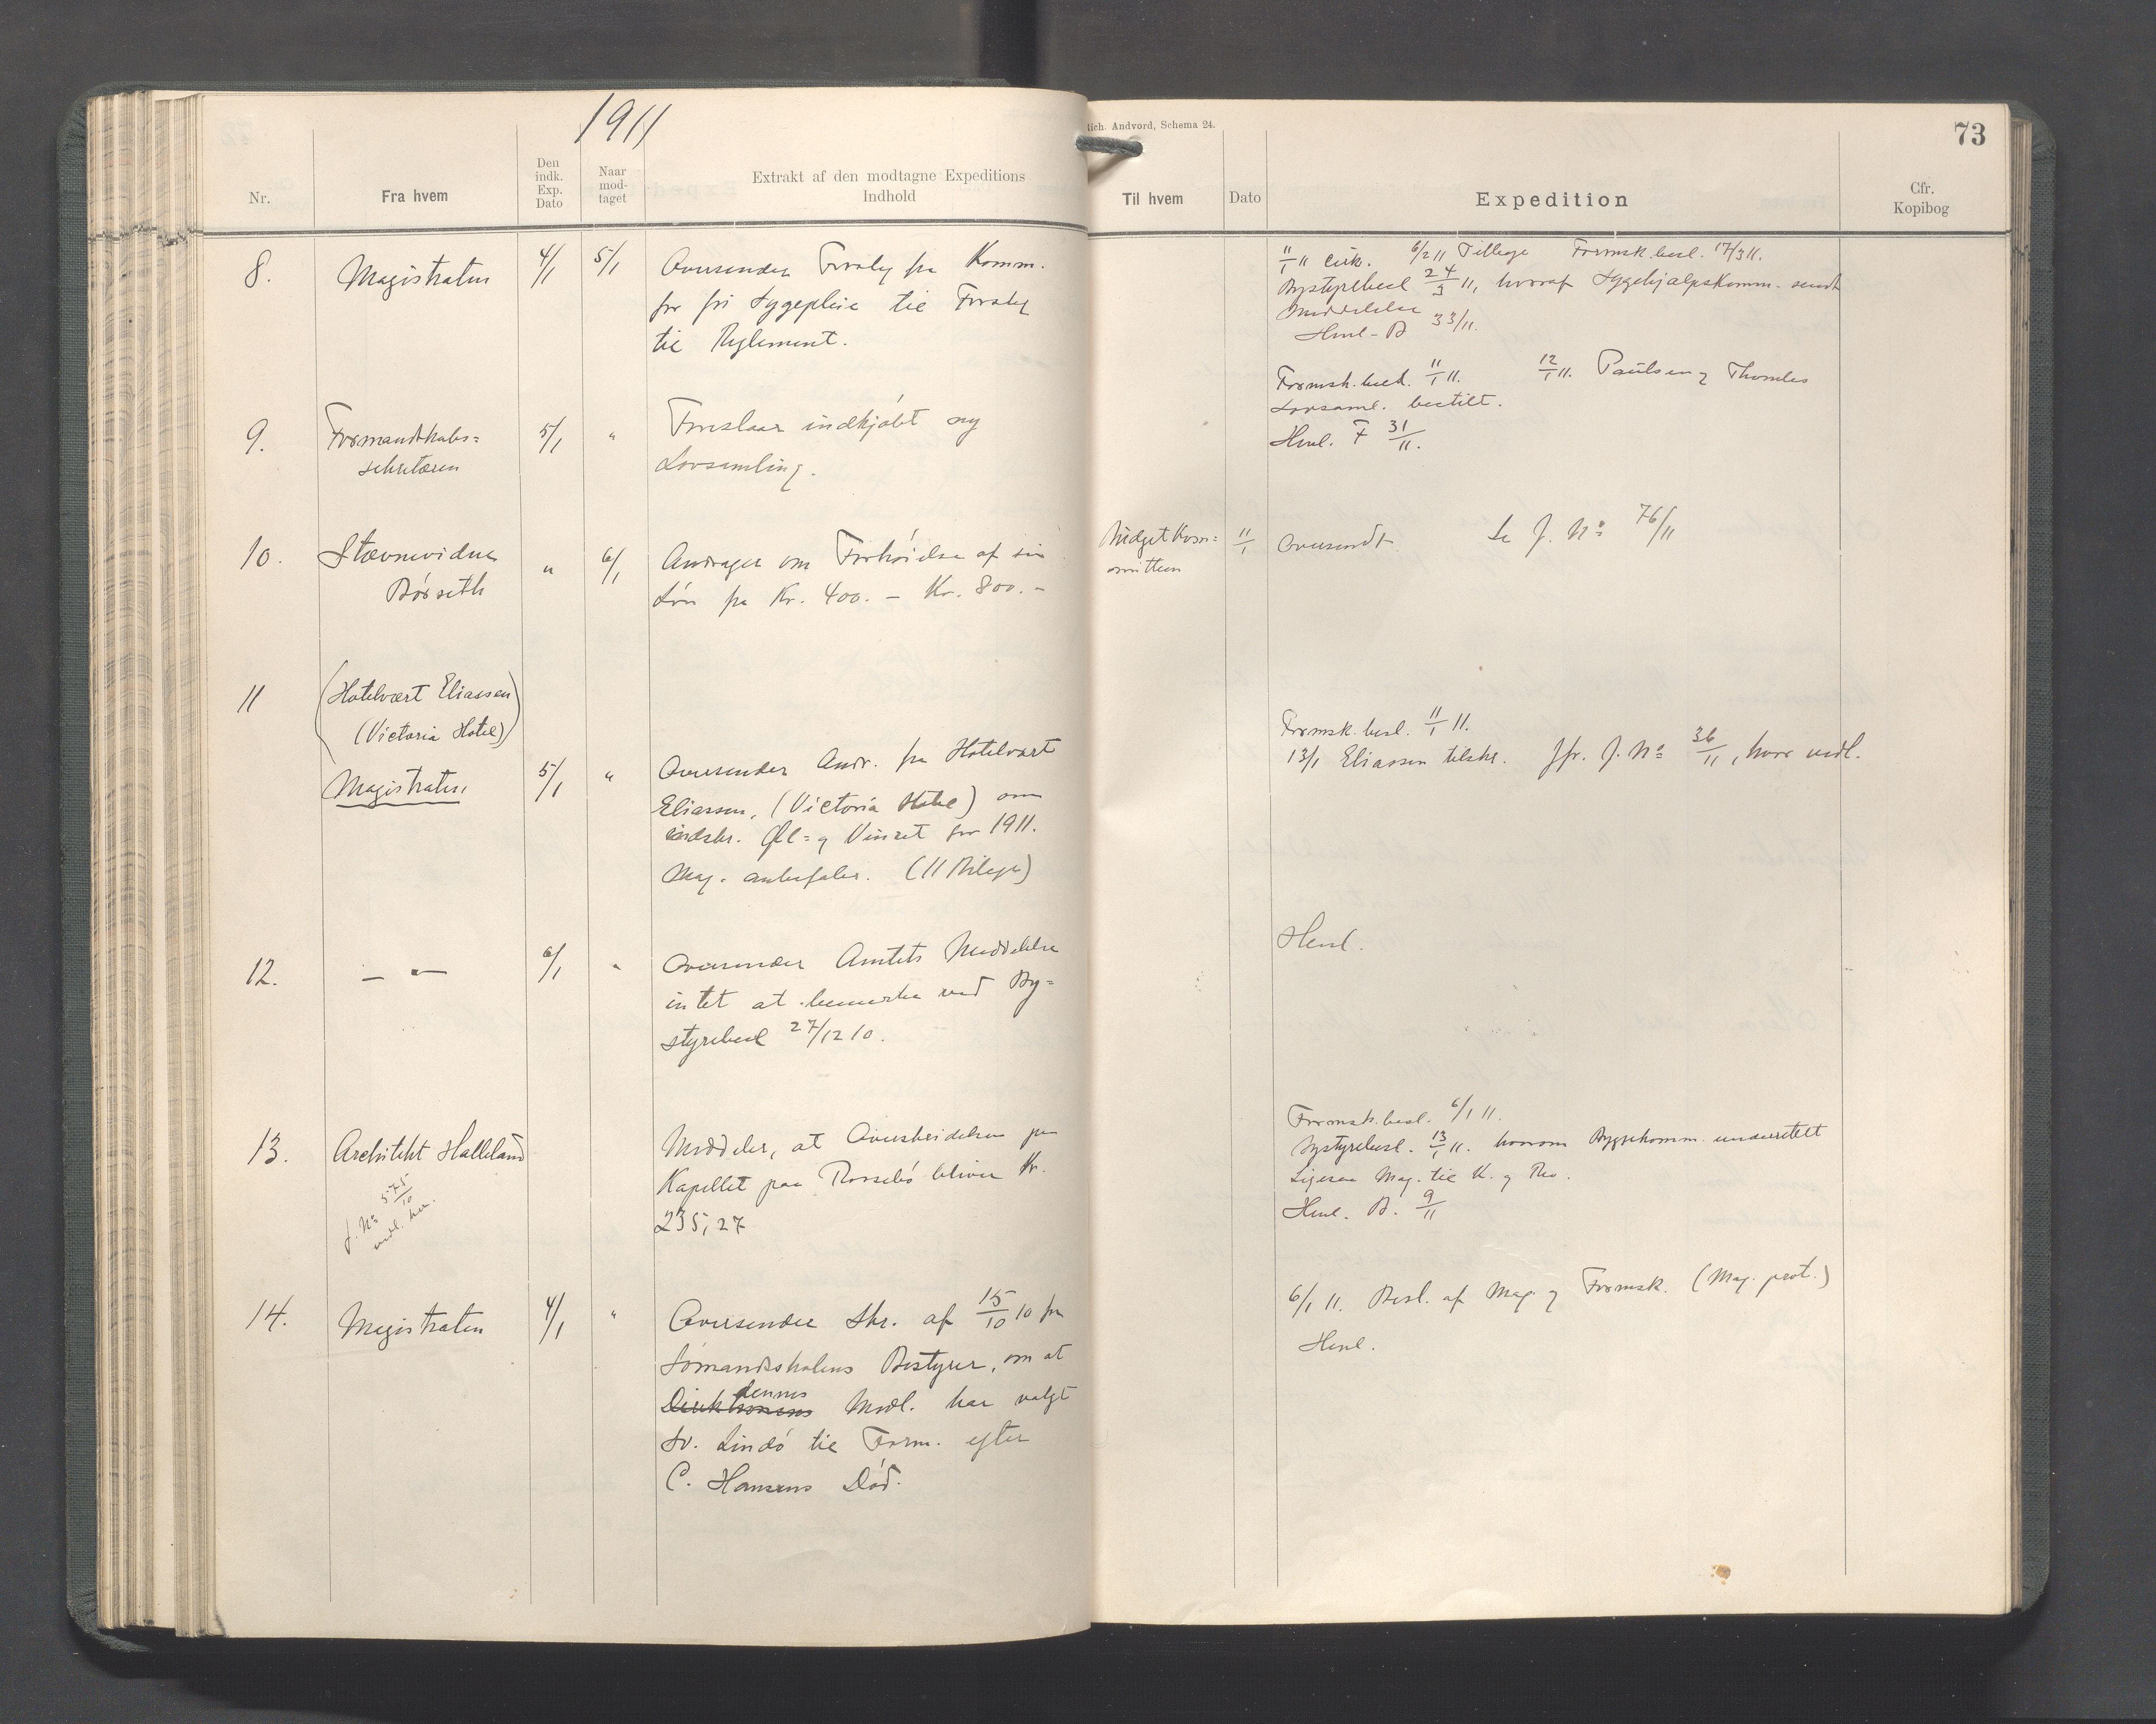 1911
Nr.
Fra hvem
Den indk. Exp. Dato
Naar mod- taget
Extrakt af den modtagne Expeditions Indhold
ich. Andvord, Schema 24.
73
Til hvem
Dato
Expedition
Cfr. Kopibog
8. Magistraten 4/1 5/1 Oversender Forslag fra Komm.
for fri Sygepleie til Forslag
til Reglement.
11/1 11 Cirk. 6/2 11 Tillæge Formsk.besl. 17/3 11.
Bystyrebesl 24/3 11, hvoraf Sygehjælpskomm. sendt
Meddelelse
Henl - B 33/11.
9. Formandskabs=
sekretæren 5/1 " Foreslaar indkjøbt ny
Lovsamling.
Formsk.besl. 11/1 11. 12/1 11. Paulsen og Thomles
Lovsaml. bestilt.
Henl. F 31/11.
10. Stævnevidne
Børseth " 6/1 Andrager om Forhøielse af sin
Løn fra Kr. 400. - Kr. 800. -
Budgetkom=
mitteen 11/1 Oversendt. Se J. No 76/11
11 (Hotelvært Eliassen
(Victoria Hotel))
Magistraten 5/1 " Oversender Andr. fra Hotelvært
Eliassen, (Victoria Hotel) om
indskr. Øl= og Vinret for 1911.
Mag. anbefaler. (11 Bilage)
Formsk.besl. 11/1 11.
13/1 Eliassen tilskr. Jfr. J. No 36/11, hvor vedl.
12. — " — 6/1 " Oversender Amtets Meddelelse
intet at bemerke ved By=
styrebesl 27/12 10.
Henl.
13. Architekt Halleland
J. No 575/10
vedl. her.
Meddeler, at Overskridelsen paa
Kapellet paa Rossebø bliver Kr.
235,27
Formsk.besl. 6/1 11.
Bystyrebesl. 13/1 11. hvorom Byggekomm. underrettet
Ligesaa Mag. til K. og Rev.
Henl. B. 9/11
14. Magistraten 4/1 " Oversender Skr. af 15/10 10 fra
Sømandsskolens Bestyrer, om at
Direktionens dennes Medl. har valgt
Sv. Lindø til Form. efter
C. Hansens Død.
6/1 11. Besl. af Mag. og Formsk. (Mag. prot.)
Henl.